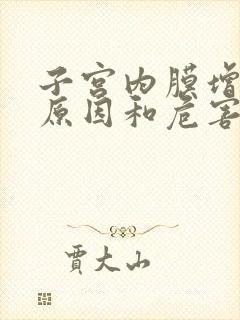 子宫内膜增
原因和危害
贾大山